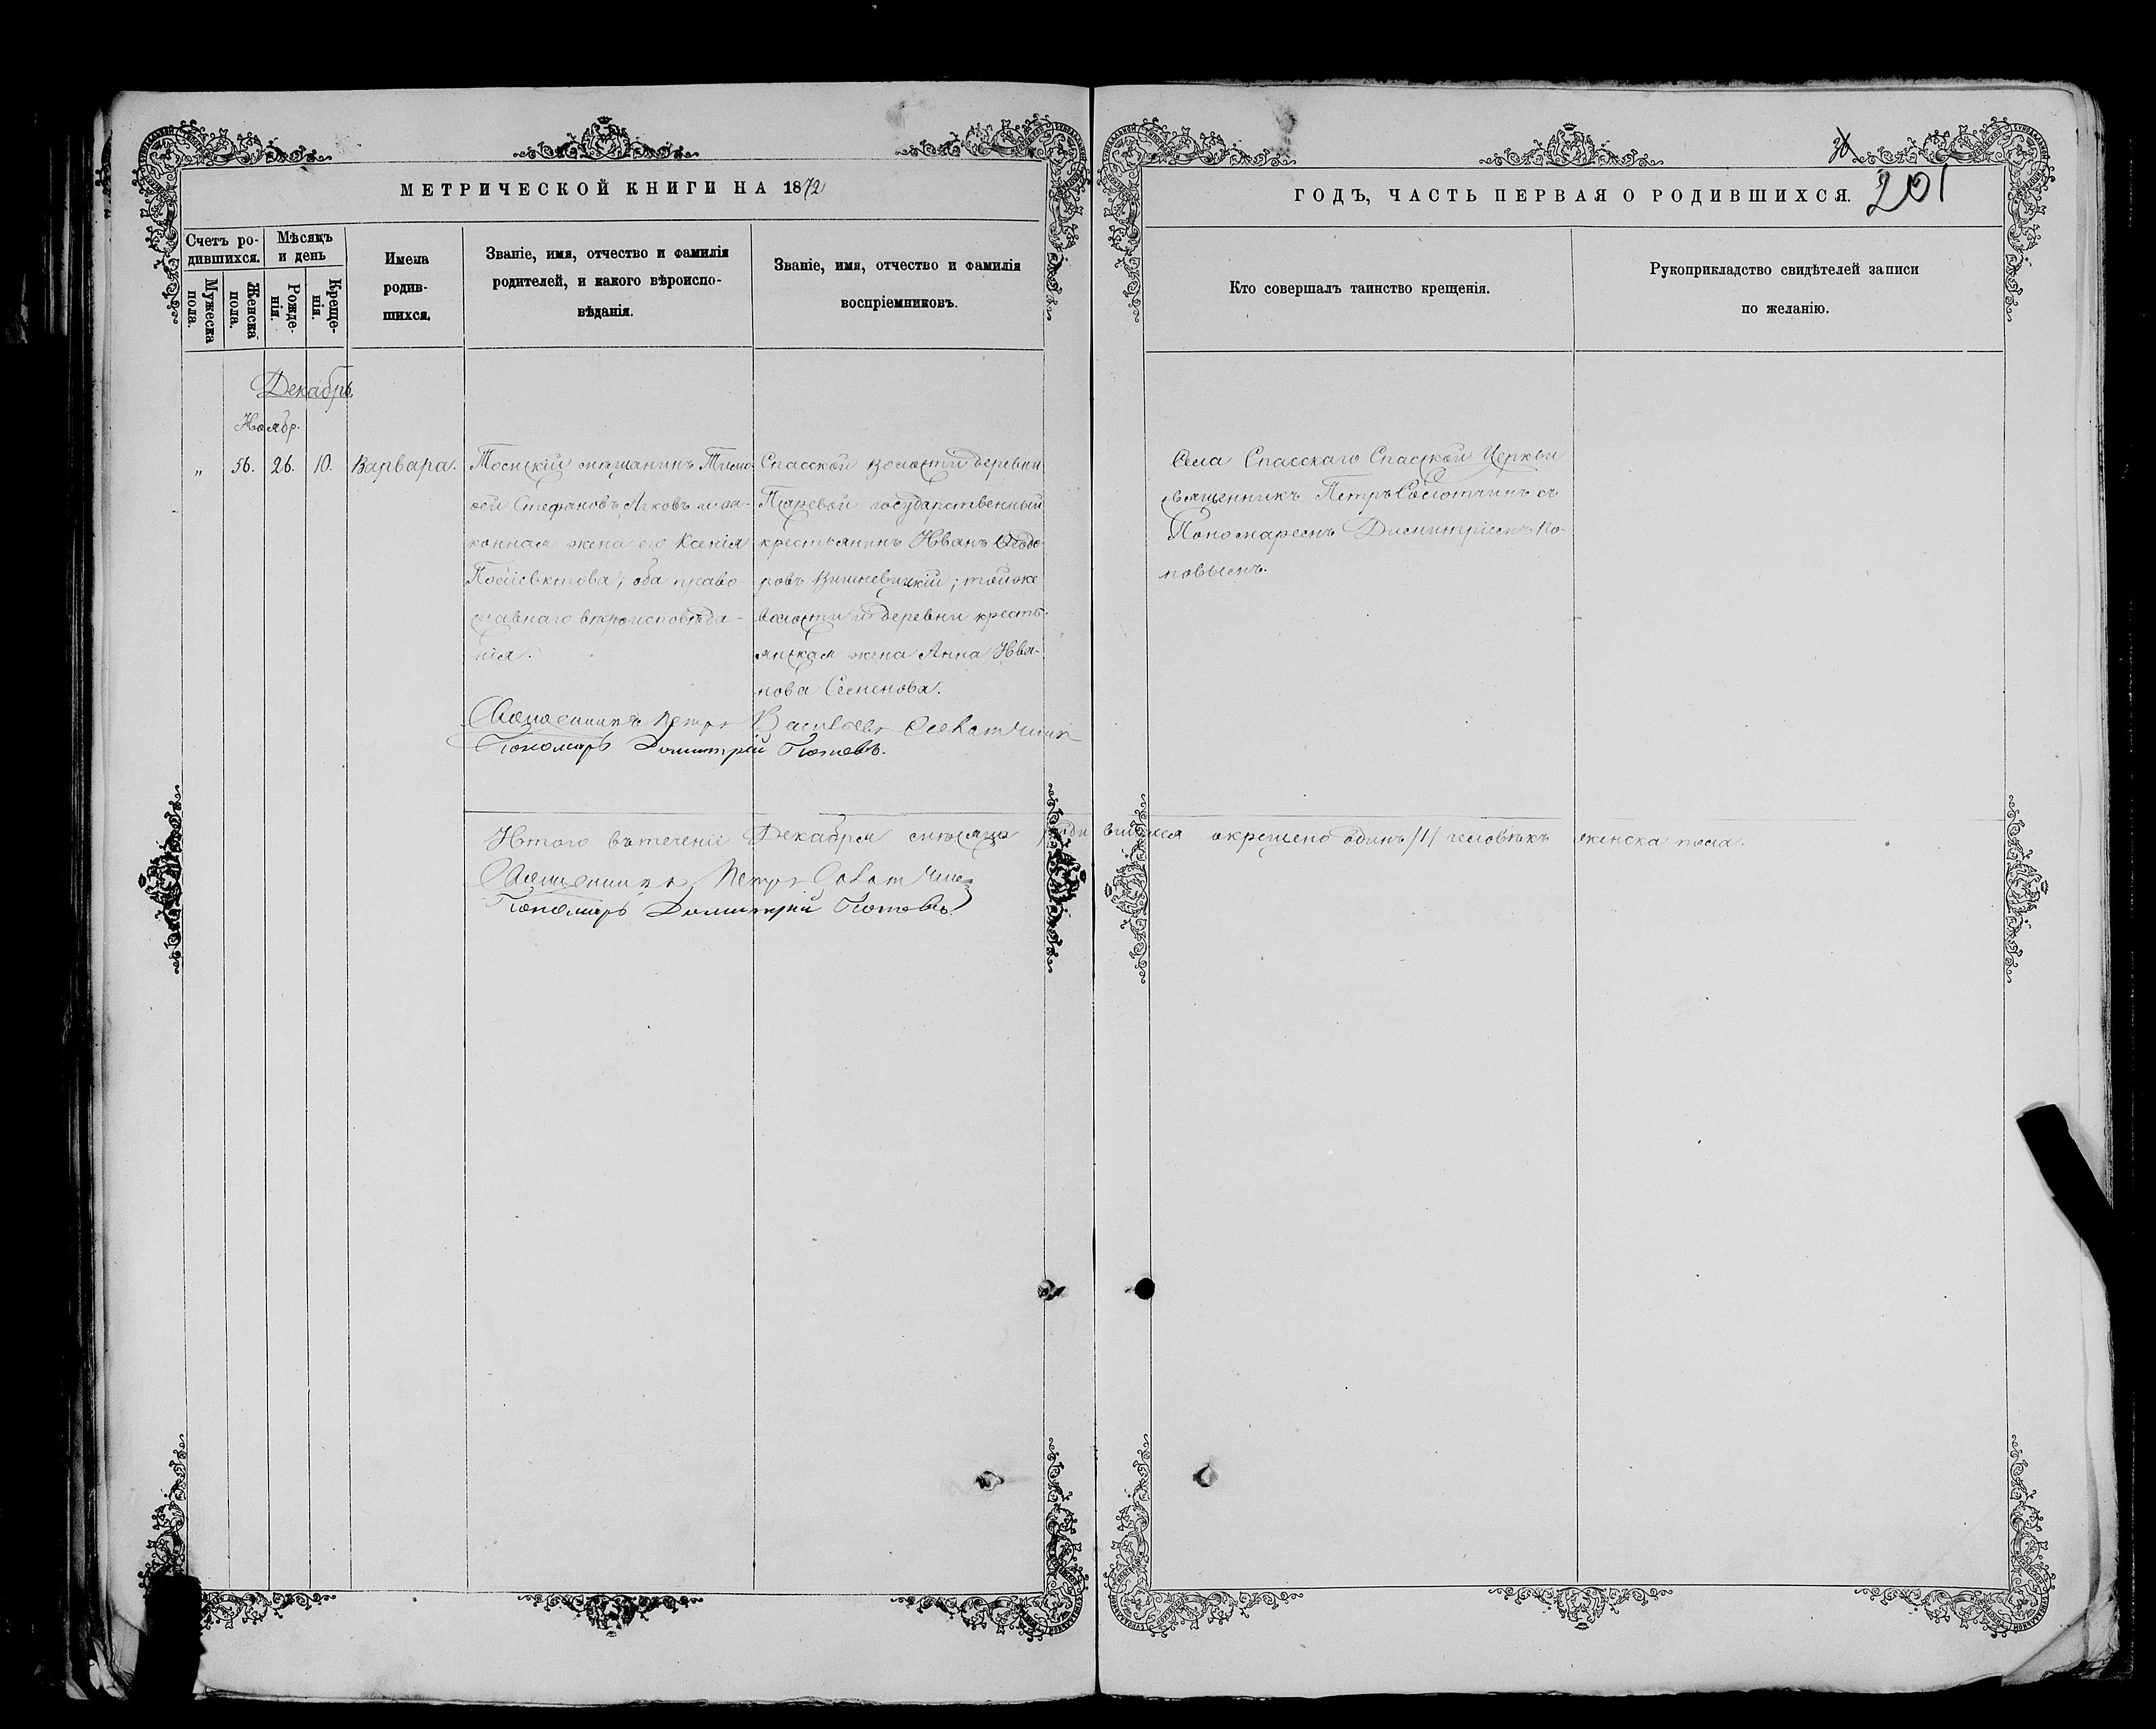 МЕТРИЧЕСКОЙ КНИГИ НА 1872
Счетъ ро-
дившихся.
Мужеска
пола.
Женска
пола.
Мѣсяцъ
и день
Рожде-
нія.
Креще-
нія.
Имена
родив-
шихся.
Званіе, имя, отчество и фамилія
родителей, и какого вѣроиспо-
вѣданія.
Званіе, имя, отчество и фамилія
воспріемниковъ.
Декабрь.
Ноябр.
„ 56. 26. 10. Варвара.
Томскій мѣщанинъ Тимо
ѳей Стефановъ и за-
конная жена его Ксенія
оба право-
славнаго вѣроисповѣда-
нія.
Спасской волости деревни
государственный
крестьянинъ Иванъ Ѳеодо-
ровъ Вишневицкій; той же
волости и деревни кресть-
янская жена Анна Ива-
нова Семенова.
Священникъ Петръ Васильевъ
Пономарь Димитрій Поповъ.
Итого въ теченіе Декабря мѣсяца родившихся и крещено одинъ /1/ человѣкъ женска пола.
Священникъ Петръ
Пономарь Димитрій Поповъ
201
ГОДЪ, ЧАСТЬ ПЕРВАЯ О РОДИВШИХСЯ.
Кто совершалъ таинство крещенія.
Рукоприкладство свидѣтелей записи
по желанію.
Села Спасскаго Спасской Церкви
священникъ Петръ съ
Пономаремъ Димитріемъ По-
повымъ.